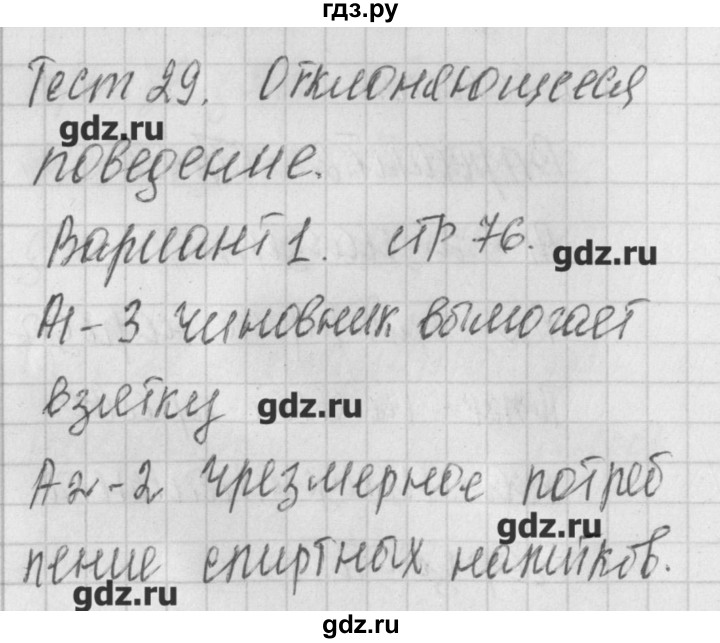 гдз.ру
Тест 29. Отклоняющееся
gdz.ru
поведение.
Вариант 1. стр 76.
gdz.ru
А1-3 чиновник вымогает
взятку gdz.ru
А2-2 чрезмерное потреб
gdz.ru
ление спиртных напитков.
gdz.ru
gdz.ru